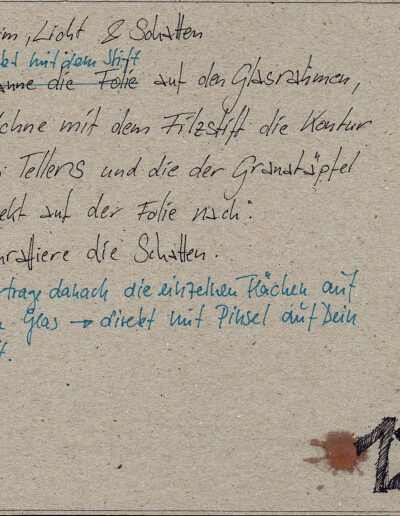 im, Licht & Schatten
kt mit dem Stift
anne die Folie auf den Glasrahmen,
ichne mit dem Filzstift die Kontur
s Tellers und die der Granatäpfel
ekt auf der Folie nach.
hraffiere die Schatten.
trage danach die einzelnen Flächen auf
n Glas → direkt mit Pinsel auf Dein
t.